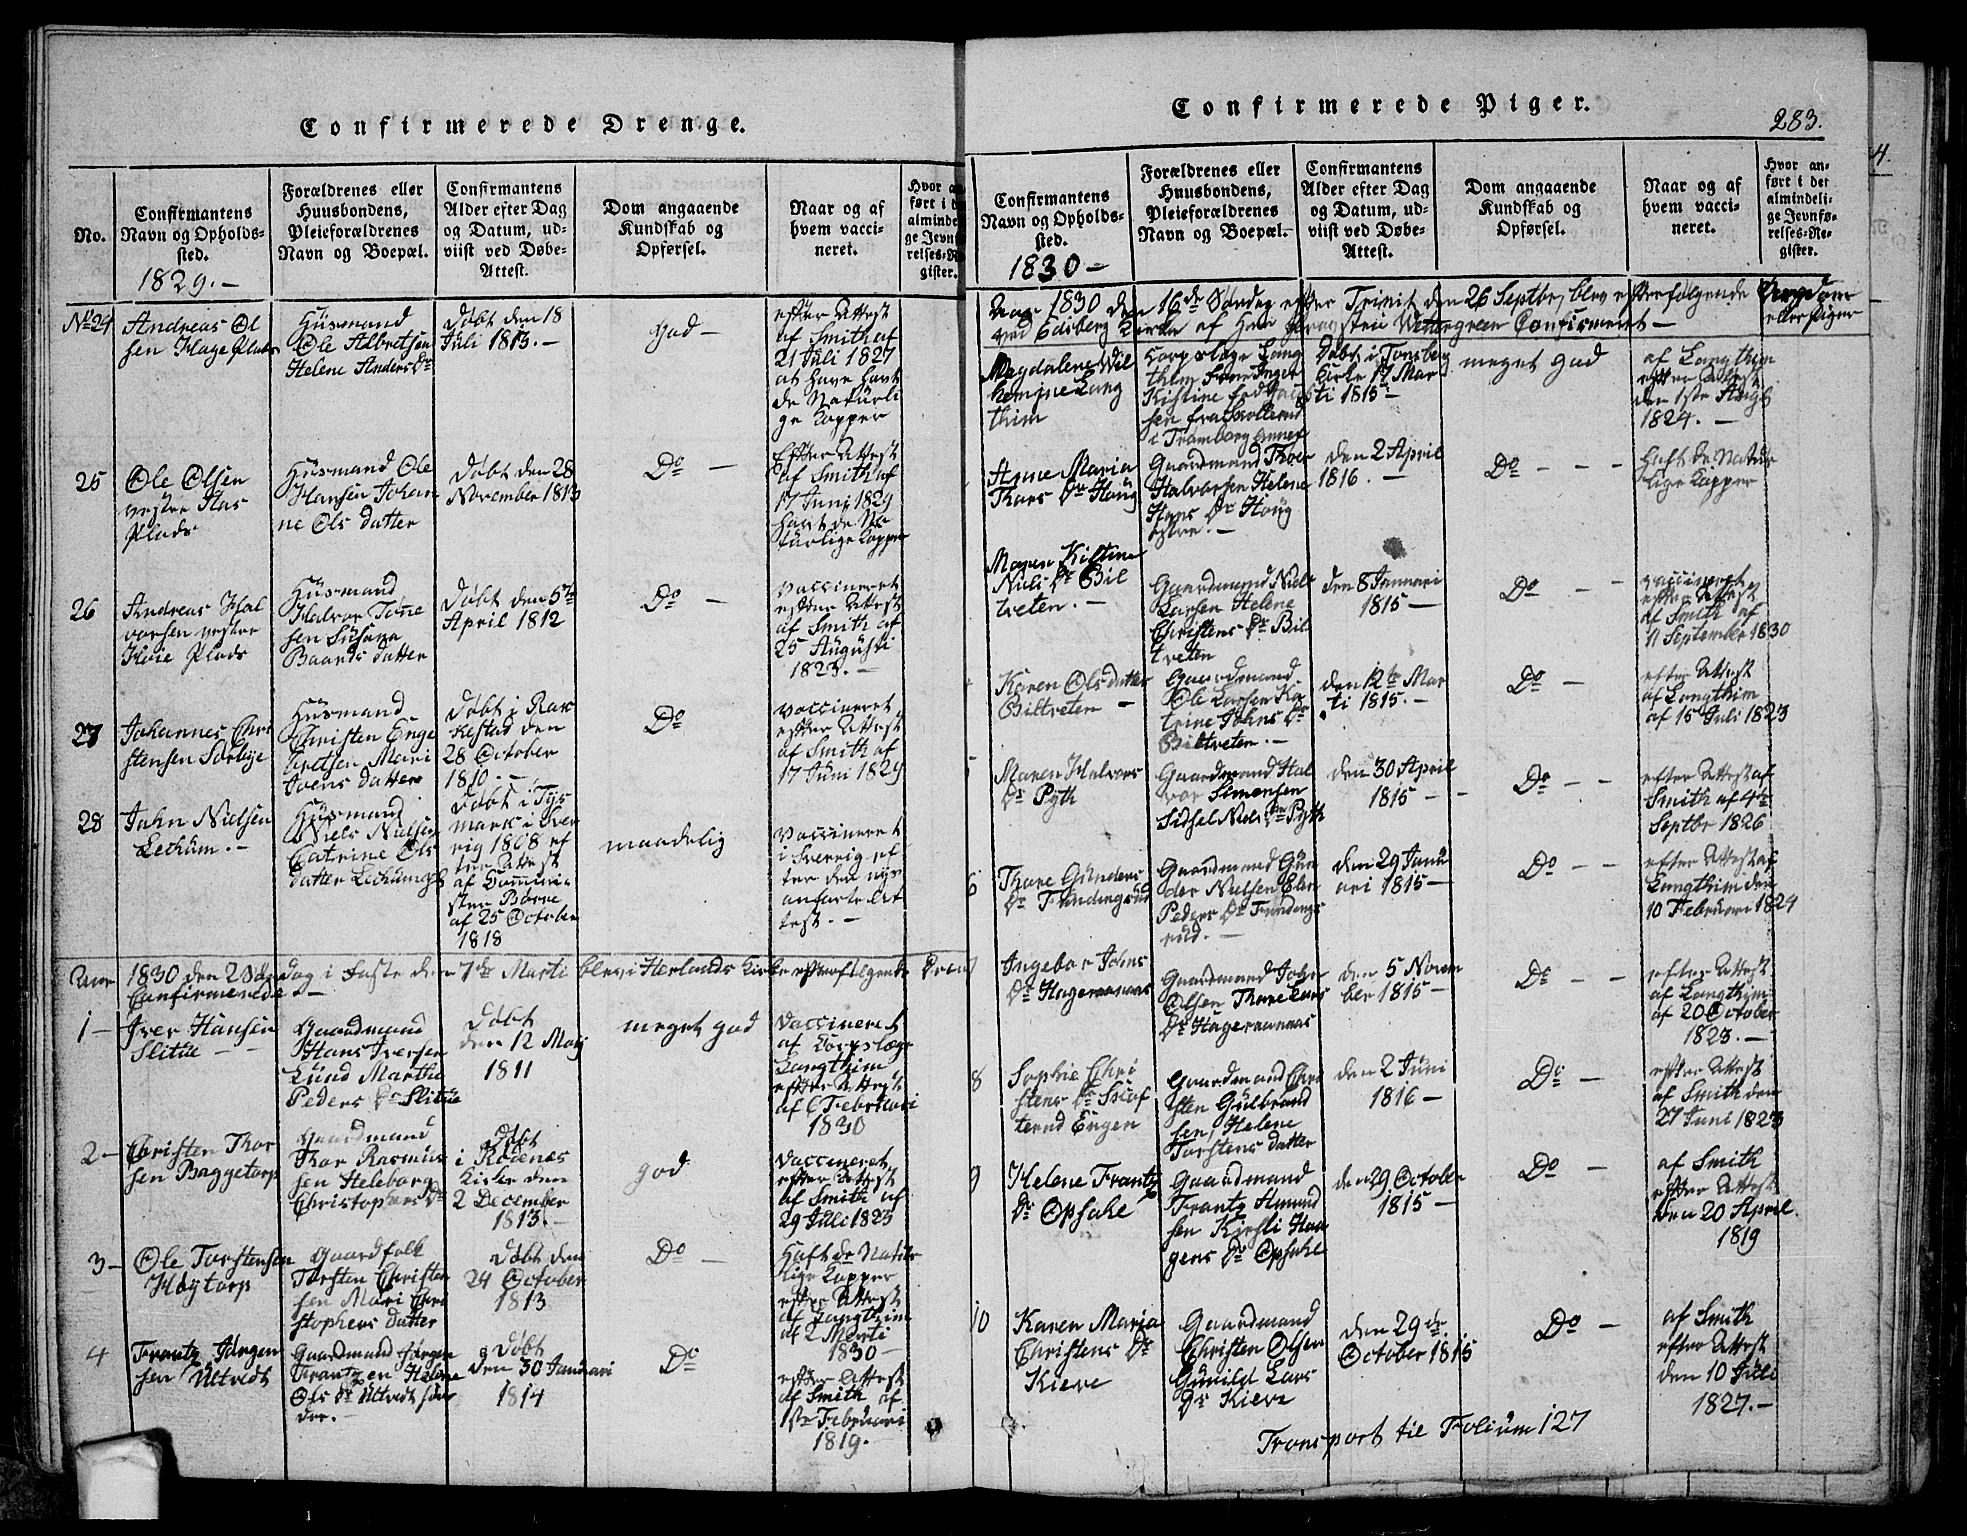 Confirmerede Drenge.
No.
Confirmantens
Navn og Opholds-
sted.
1829. —
Forældrenes eller
Huusbondens,
Pleieforældrenes
Navn og Boepæl.
Confirmantens
Alder efter Dag
og Datum, ud-
viist ved Døbe-
Attest.
Dom angaaende
Kundskab og
Opførsel.
Naar og af
hvem vacci-
neret.
Hvor an-
ført i d
alminde
ge Jevn
relses-R
gister.
No 24
Andreas Ol
sen Hage Plads
Huusmand
Ole Albretsen
Helene Anders Dr
Døbt den 18
Juli 1813. —
god —
efter Attest
af Smith af
21 Juli 1827
at have havt
de Naturli
ge Kopper
25
Ole Olsen
vestre Has
Plads
Huusmand Ole
Hansen Johan
ne Ols datter
Døbt den 28
November 1813
Do —
Efter Attest
af Smith af
17 Juni 1829
havt de Na
turlige Kopper
26
Andreas Hal
vorsen vestre
Høie Plads
Huusmand
Halvor Tone
sen Susana
Baards datter
Døbt den 5te
April 1812
Do —
vaccineret
efter Attest
af Smith af
25 Augusti
1823. —
27
Johannes Chri
stensen Sørbye
Huusmand
Christen Enge
bretsen Mari
Joens datter
Døbt i Rak
kestad den
28 October
1810. —
Do
vaccineret
efter Attest
af Smith af
17 Juni 1829
28
John Nielsen
Lechum. —
Huusmand
Niels Nielsen
Catrine Ols
datter Lechumeje
Døbt i Tys
mark i Sver
rig 1808 ef
ter Attest
af Commini
ster Borre
af 25 October
1818
maadelig
Vaccineret
i Sverrig ef
ter den nys
anførte At
test. —
Aar 1830 den 2 Søndag i Faste den 7de Marti blev i Herlands Kirke efterfølgende Dreng
Confirmerede —
1 —
Iver Hansen
Slitue — —
Gaardmand
Hans Iversen
Lund Marthe
Peders Dr Slitue
Døbt
den 12 Maj
1811
meget god
vaccineret
af Corpslæge
Langthim
efter Attest
af 6 Februari
1830
2 —
Christen Thor
sen Baggetorp
Gaardmand
Thor Rasmus
sen Heleborg
Christophers Dr
Døbt
i Rødenæs
Kirke den
2 December
1813. —
god
vaccineret
efter Attest
af Smith af
29 Juli 1823
3 —
Ole Torstensen
Høytorp
Gaardfolk
Torsten Christen
sen Mari Chri
stophers datter
Døbt den
24 October
1813
Do —
Haft de Natur
lige Kopper
efter Attest
af Langthim
af 2 Marti
1830 —
4
Frantz Jørgen
sen Ultvedt
Gaardmand Jørgen
Frantzen Helene
Ols Dr Ultvedt søn
dre. —
Døbt
den 30 Januari
1814
Do
efter Attest
af Smith af
1ste Februari
1819.
Confirmerede Piger.
283.
4.
Confirmantens
Navn og Opholds-
sted.
1830 —
Forældrenes eller
Huusbondens,
Pleieforældrenes
Navn og Boepæl.
Confirmantens
Alder efter Dag
og Datum, ud-
viist ved Døbe-
Attest.
Dom angaaende
Kundskab og
Opførsel.
Naar og af
hvem vacci-
neret.
Hvor an-
ført i det
almindeli-
ge Jevnfø-
relses-Re-
gister.
Aar 1830 den 16de Søndag efter Trinit den 26 Septbr, blev efterfølgende Ungdom
ved Edsberg Kirke af Herr Provsten Wettergreen Confirmeret — eller Piger
Magdalene Wil
hemine Lang
thim
Corpslæge Lang
thim Sone Inger
Kistine fød Jacob
sen fra Skollerud
i Tromborg Annex
Døbt i Tonsberg
Kirke 17 Mar
ti 1815 —
meget god
af Langthim
efter Attest
den 1ste Augst
1824. —
Anne Maria
Thors Dr Houg
Gaardmand Thor
Halvorsen Helene
Hans Dr Houg
østre. —
den 2 April
1816. —
Do — — —
Haft de Natur
lige Kopper
Maren Kistine
Niels Dr Bil
treten. —
Gaardmand Niels
Larsen Helene
Christens Dr Bil
treten
den 8 Januari
1815 —
Do — —
vaccineret
efter Attest
af Smith af
11 September 1830
Karen Olsdatter
Biltreten —
Gaardmand
Ole Larsen Ka
trine Johns Dr
Biltreten. —
den 12te Mar
ti 1815. —
Do —
efter Attest
af Langthim
af 15 Juli 1823
5
Maren Halvors
Dr Pyth
Gaardmand Hal
vor Simensen
Sidsel Niels Dr Pyth
den 30 April
1815 — —
Do — —
efter Attest af
Smith af 4de
Septbr 1826
6
Thore Gunders
Dr Fundingsrud
Gaardmand Gun
der Nielsen Elen
Peders Dr Fundings
rud. —
den 29 Janu
ari 1815 —
Do — —
efter Attest af
Langthim den
10 Februari 1824
7
Ingebor Johns
Dr Hageramnæs
Gaardmand John
Olsen Thore Lars
Dr Hageramnæs
den 5 Novem
ber 1815 —
Do — —
efter Attest
af Langthim
af 20 October
1823. —
8
Sophie Chri
stens Dr Skof
terud Engen
Gaardmand Chri
sten Gulbrand
sen, Helene
Torstens datter
den 2 Juni
1816 —
Do —
efter Attest
af Smith den
27 Juni 1823
9
Helene Frantz
Dr Opsahe
Gaardmand
Frantz Amund
sen Kirsti Haa
gens Dr Opsahe
den 29 October
1815 —
Do —
af Smith
efter Attest
den 20 April.
1819
10
Karen Maria
Christens Dr
Kieve
Gaardmand
Christen Olsen
Gunild Lars
Dr Kieve
den 29 de
October 1815
Do —
af Smith
efter Attest
den 10 Juli
1827. —
Transport til Folium 127